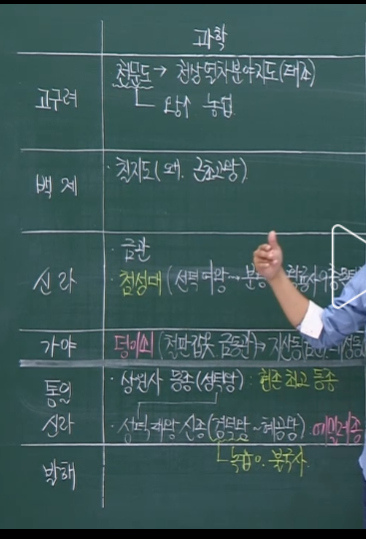 과학
고구려
천문도 → 천상열차분야지도(태조)
왕↑ 농업
백제
· 칠지도(왜. 근초고왕)
신라
· 금관
· 첨성대 (선덕여왕 → 분황
가야
덩이쇠 (철판갑옷 금동관) →
통일
신라
· 상원사 동종(성덕왕) 현존 최고 동종
· 성덕대왕 신종(경덕왕~혜공왕) 에밀레종
녹읍 O. 불국사
발해